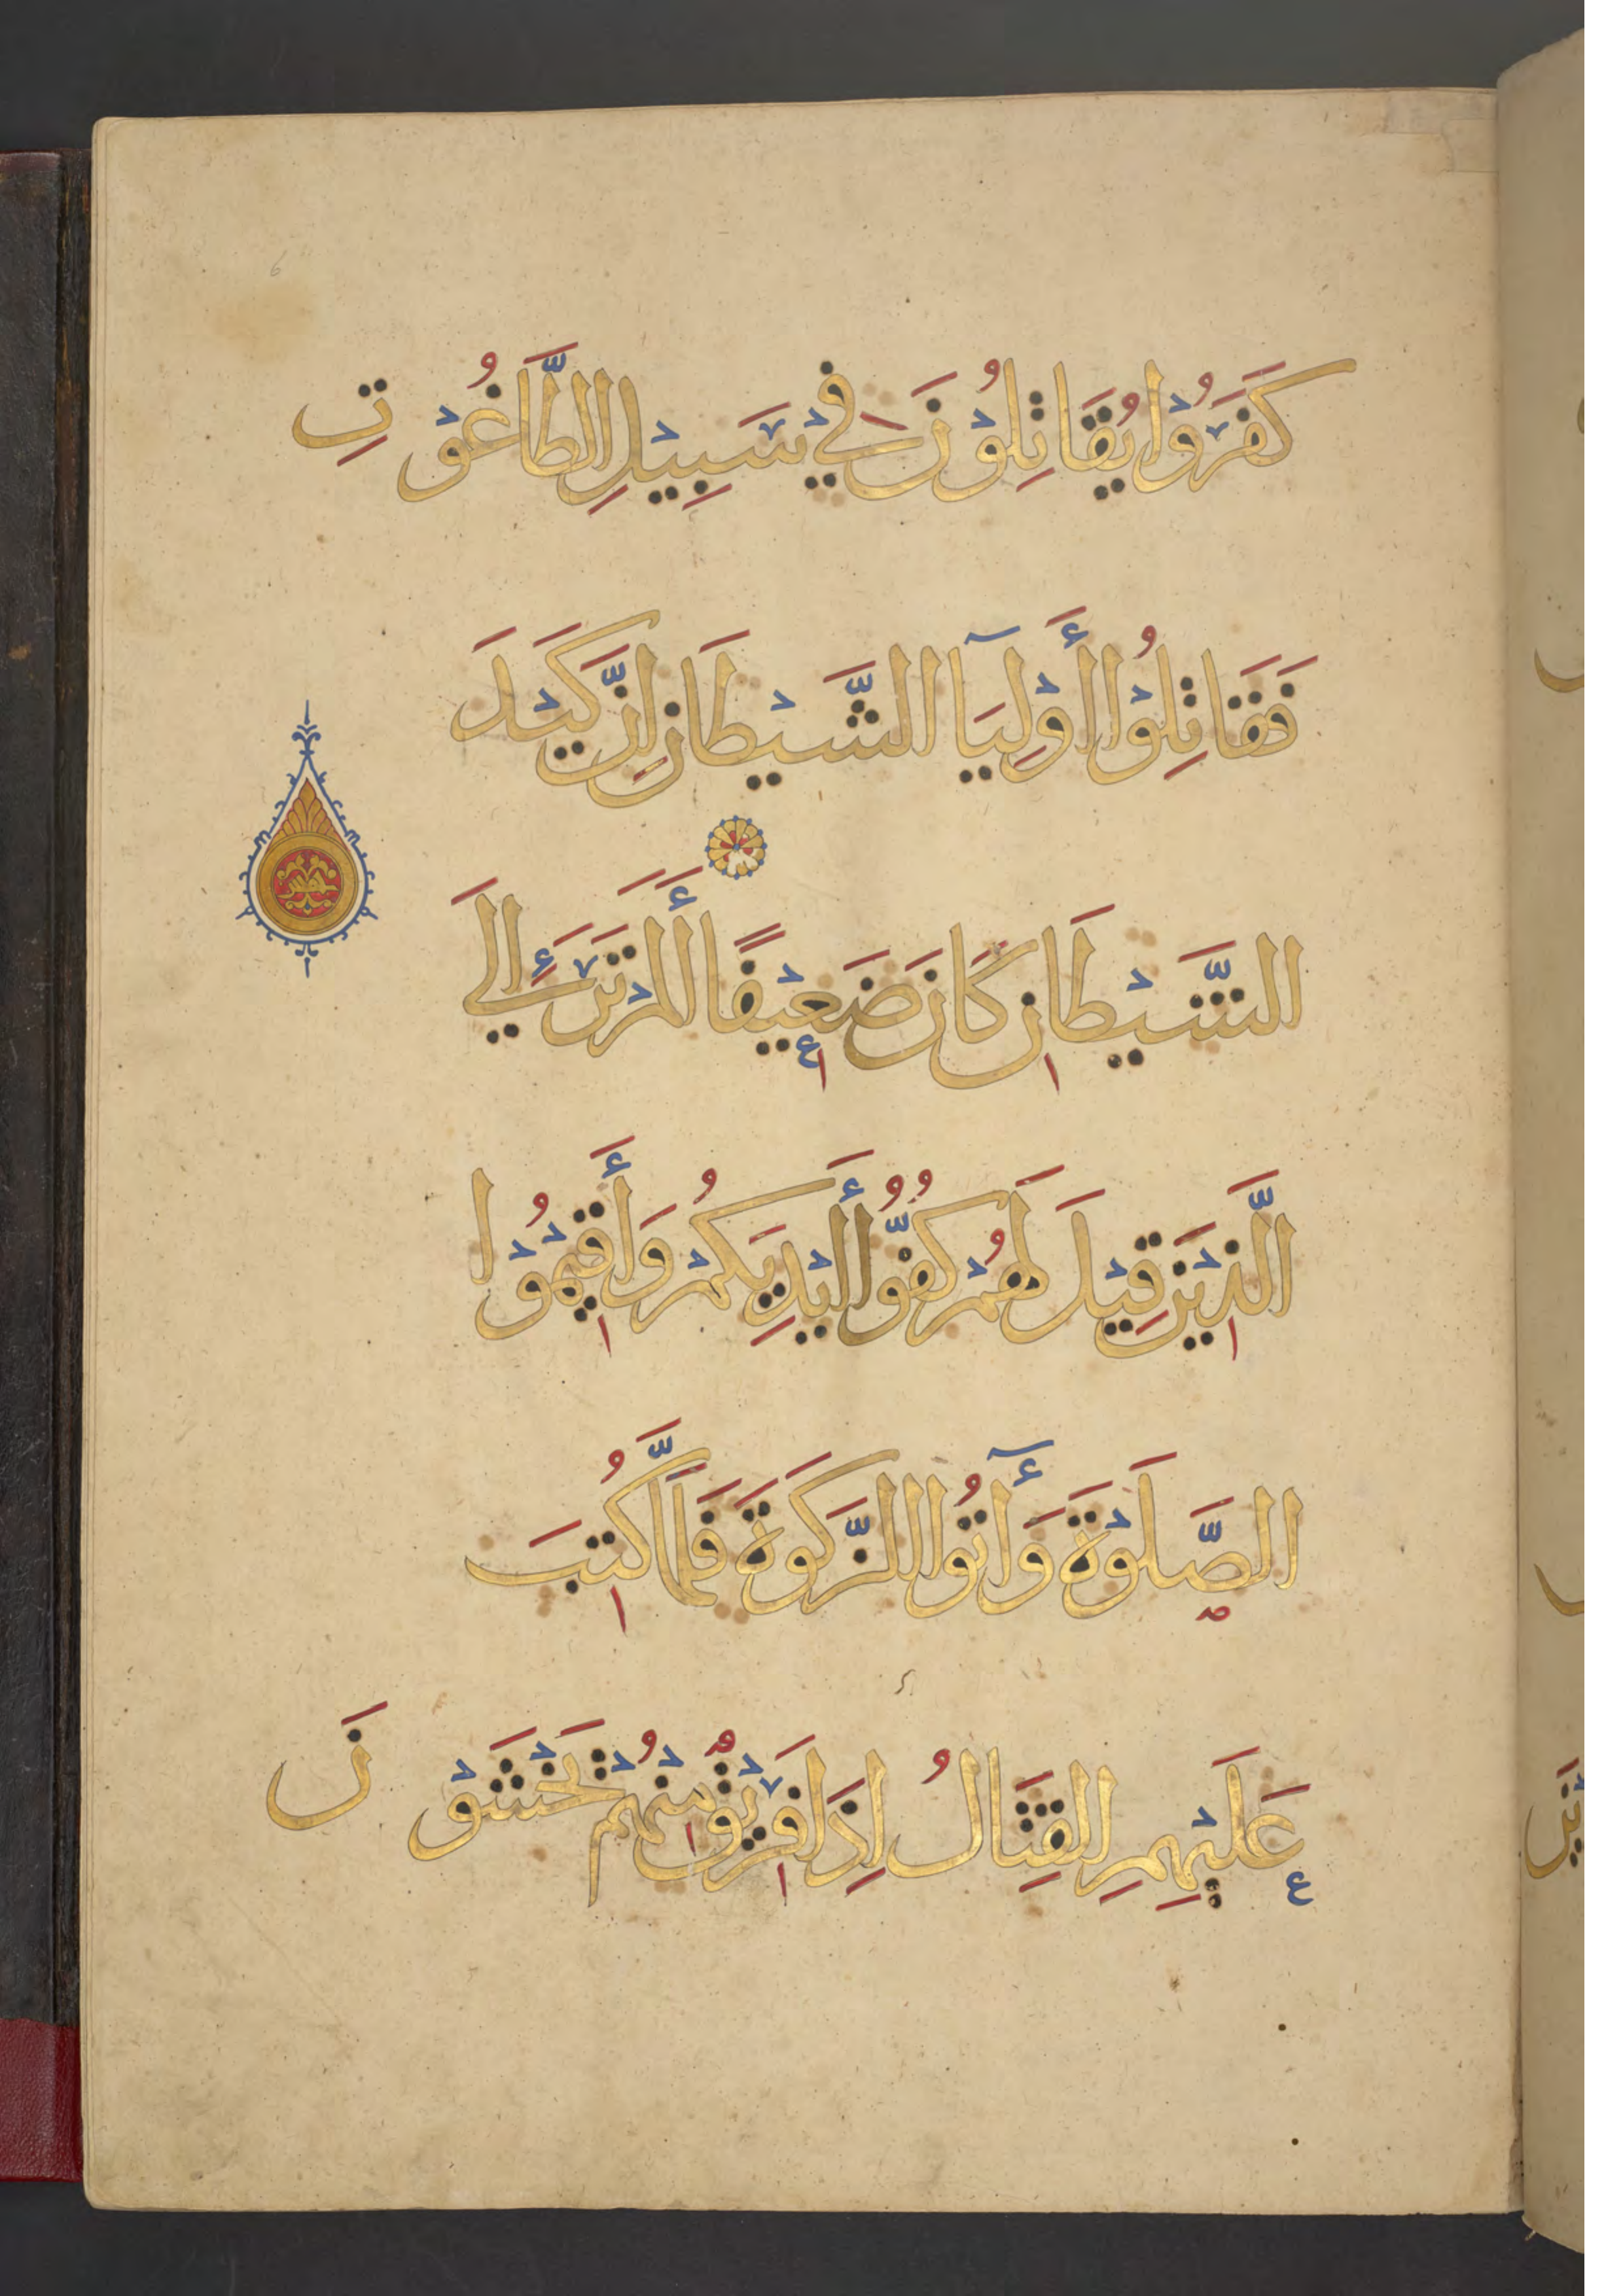 كَفَرُوْا يُقَاتِلُوْنَ فِيْ سَبِيْلِ الطَّاغُوْتِ
فَقَاتِلُوْا أَوْلِيَآ الشَّيْطَانِ اِنَّ كَيْدَ
الشَّيْطَانِ كَانَ ضَعِيْفًا أَلَمْ تَرَ إِلَي
الَّذِيْنَ قِيْلَ لَهُمْ كُفُّوْا أَيْدِيَكُمْ وَأَقِيْمُوْا
الصَّلَوٰةَ وَآتُوا الزَّكَوٰةَ فَلَمَّا كُتِبَ
عَلَيْهِمِ القِتَالُ اِذَا فَرِيْقٌ مِنْهُمْ يَخْشَوْنَ
6